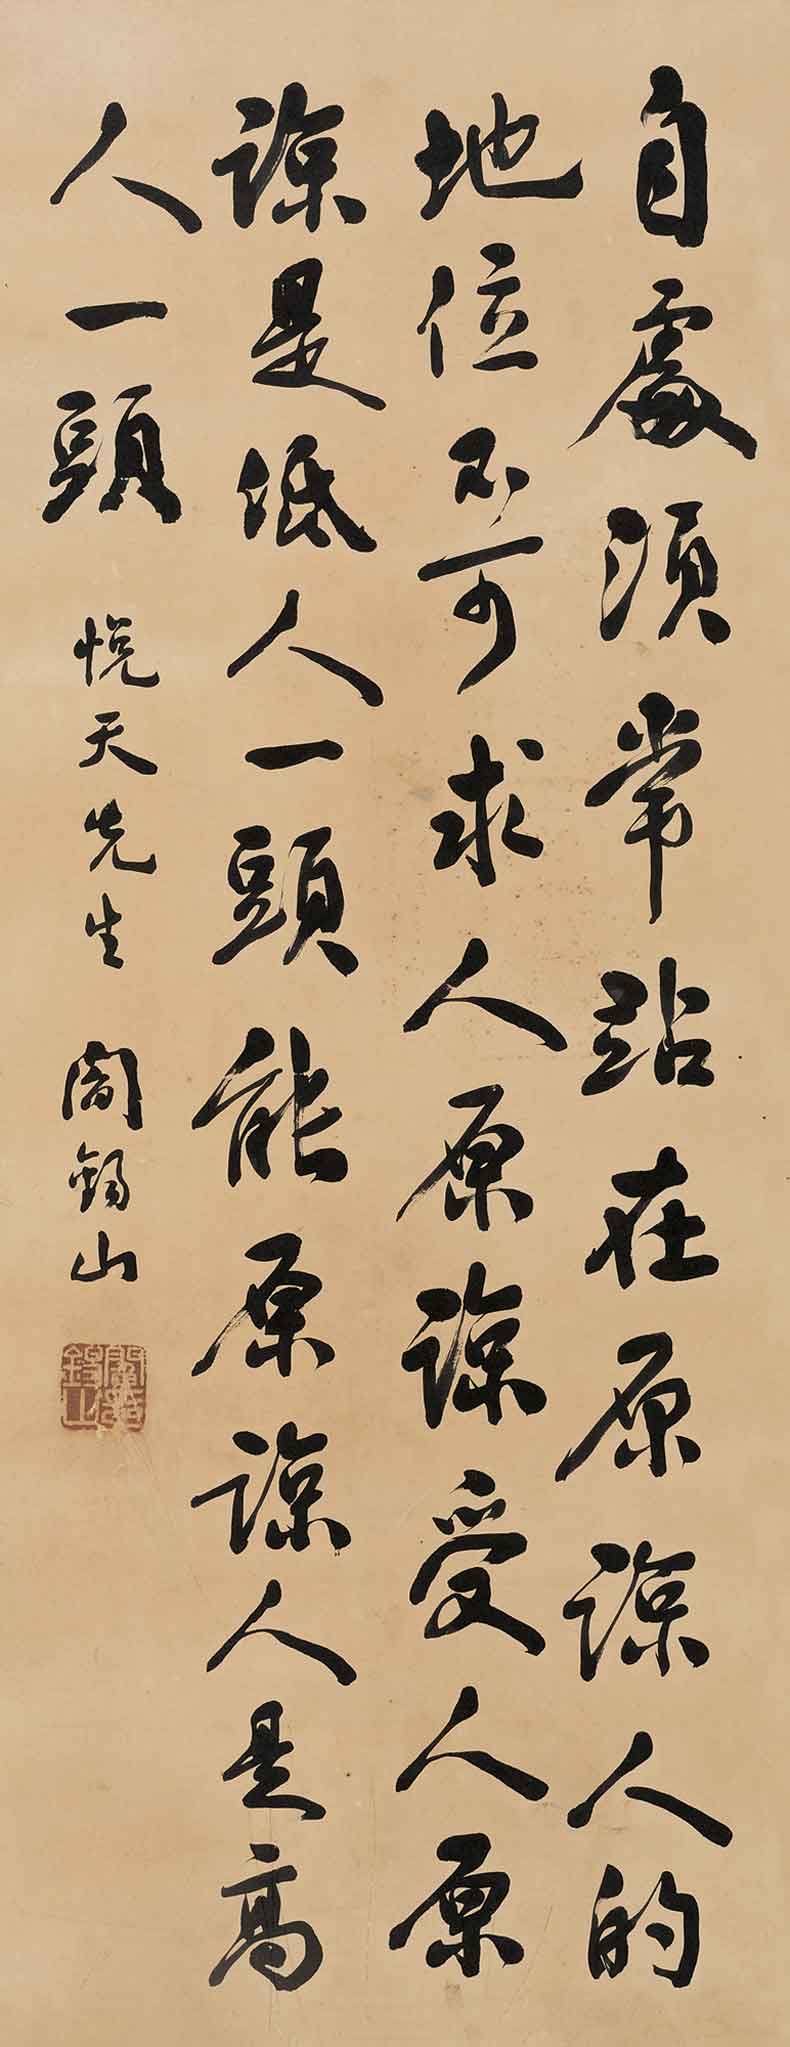 自處須常站在原諒人的
地位不可求人原諒受人原
諒是低人一頭能原諒人是高
人一頭
悅天先生 閻錫山
閻錫山